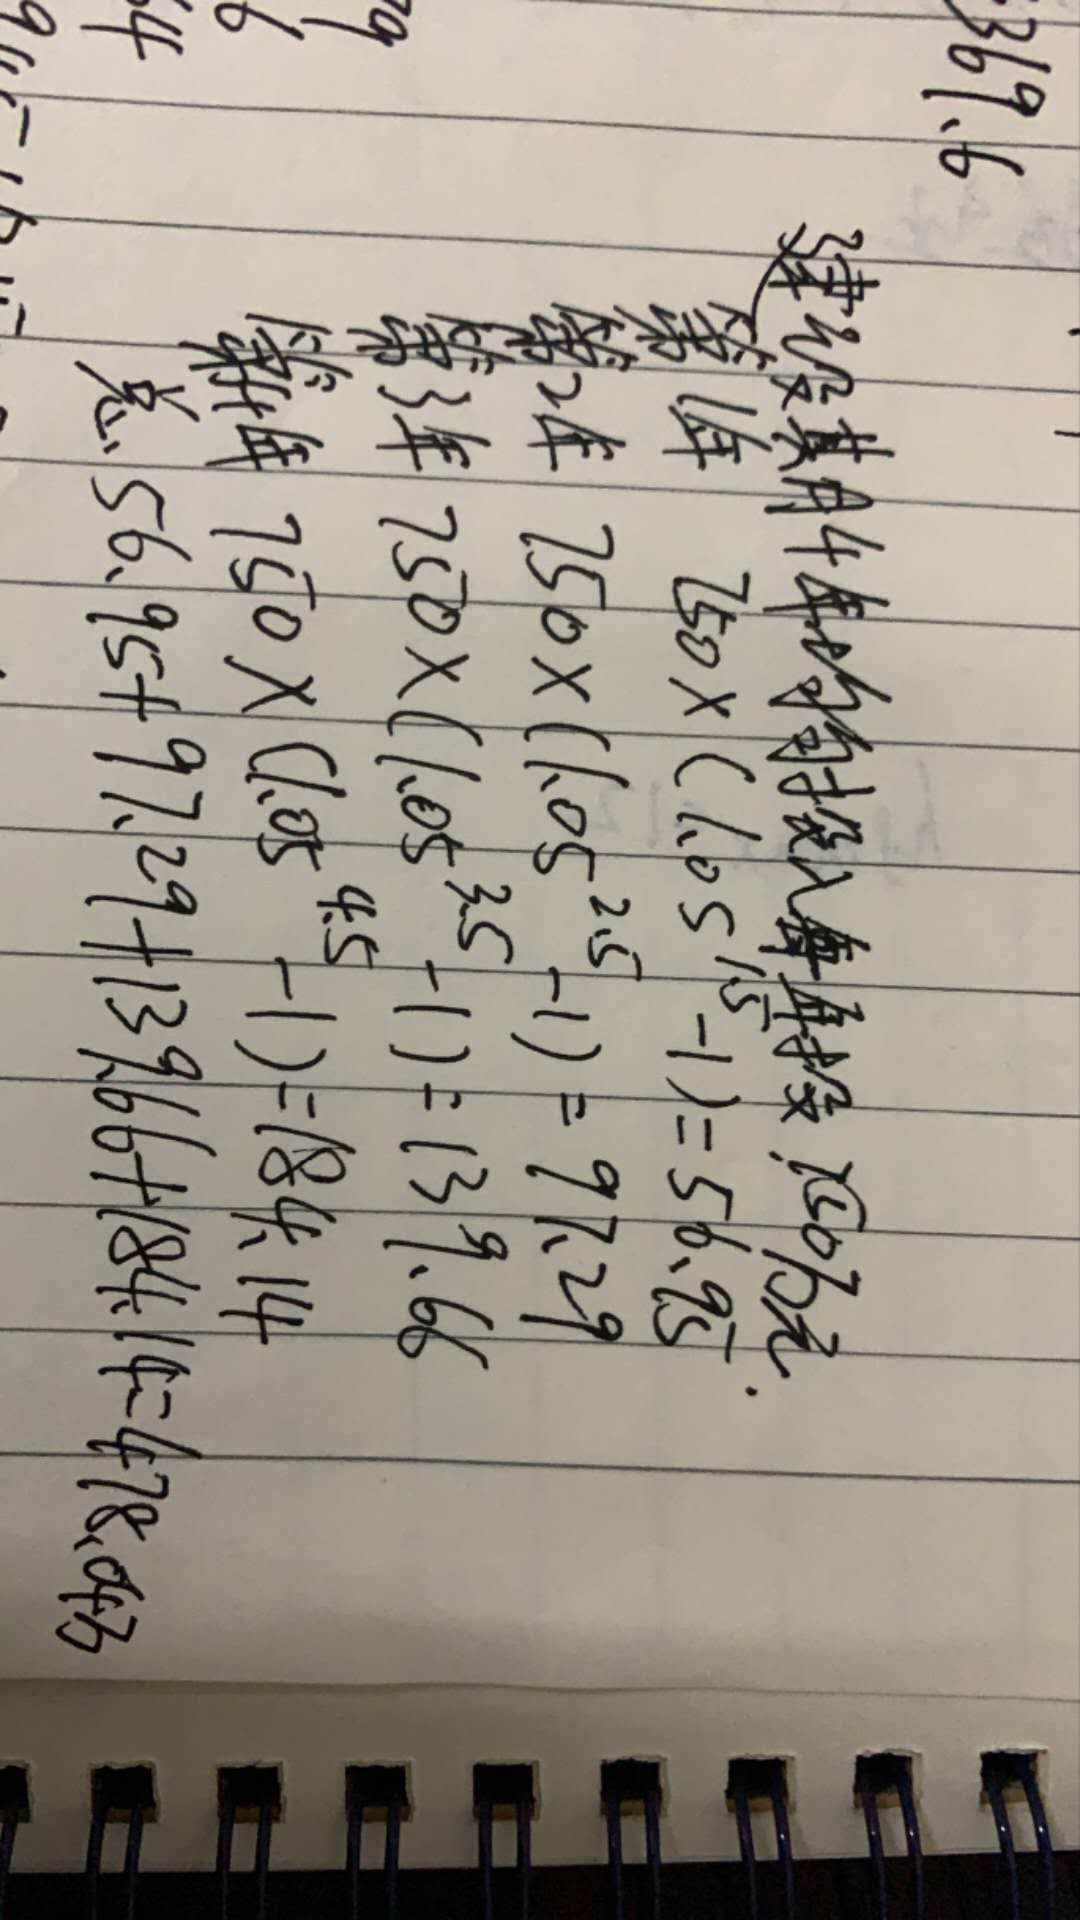 =369.6
建设总共有4年的分均投入每年投 750万元.
第1年 750×(1.05^1.5-1)=56.95
第2年 750×(1.05^2.5-1)=97.29
第3年 750×(1.05^3.5-1)=139.66
第4年 750×(1.05^4.5-1)=184.14
总、56.95+97.29+139.66+184.14=478.04万